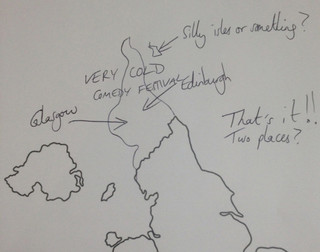 Silly isles or something?
VERY COLD
COMEDY FESTIVAL
Edinburgh
Glasgow
That's it!!
Two places?